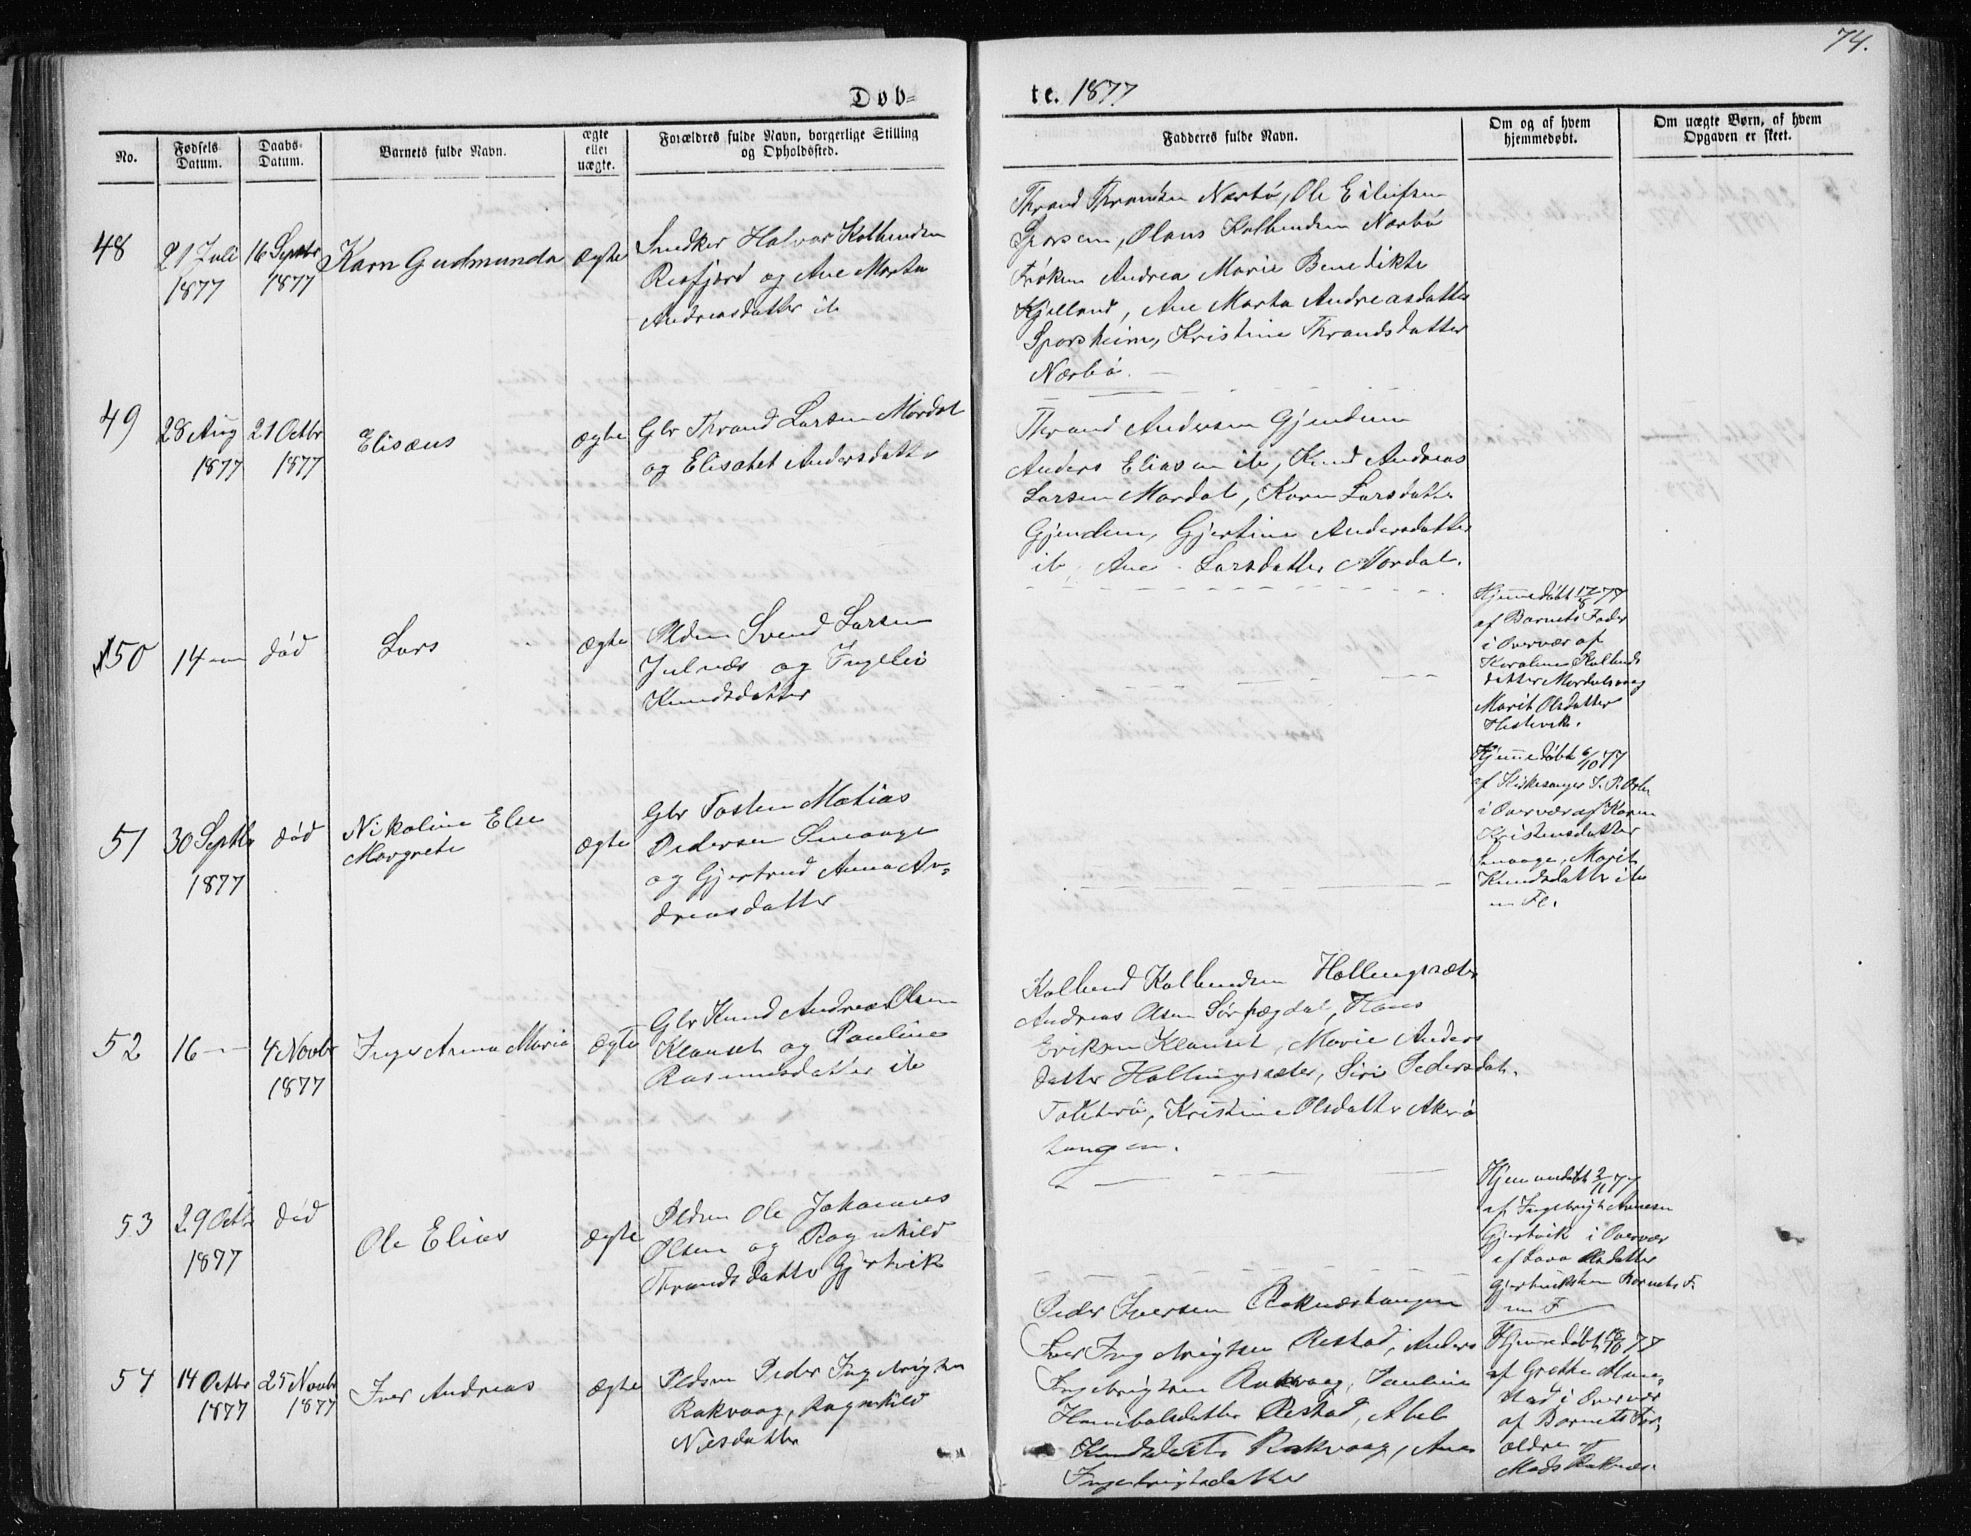 74.
Døb=
te. 1877
No.
Fødsels
Datum.
Daabs-
Datum.
Barnets fulde Navn.
ægte
eller
uægte.
Forældres fulde Navn, borgerlige Stilling
og Opholdssted.
Fadderes fulde Navn.
Om og af hvem
hjemmedøbt.
Om uægte Børn, af hvem
Opgaven er skeet.
48
21 Juli
1877
16 Septbr
1877
Karn Gudmunda
ægte
Snedker Halvor Kolbendsen
Resfjord og Ane Marta
Andreasdatter ib
Thrand Thrandsen Nærbø, Ole Eilufsen
Sporsem, Olaus Kolbendsen Nærbø
Frøken Andrea Marie Benedikte
Kjelland, Ane Marta Andreasdatter
Sporsheim, Kristine Thrandsdatter
Nærbø.
49
28 Aug
1877
21 Octbr
1877
Elisæus
ægte
Gbr Thrand Larsen Mordal
og Elisabet Andersdatter
Thrand Andersen Gjendem
Anders Eliasen ib, Knud Andreas
Larsen Mordal, Karen Larsdatter
Gjendem, Gjertine Andersdatter
ib, Ane Larsdatter Mordal.
50
14
død
Lars
ægte
Pldsm Svend Larsen
Julnæs og Ingelei
Knudsdatter
Hjemmedøbt 17/8 77
af Barnets Fader
i Overvær af
Karoline Kolbends
datter Mordalsvaag
Marit Olsdatter
Hestevik.
51
30 Septbr
1877
død
Nikoline Else
Margrete
ægte
Gbr Tosten Matias
Pedersen Smaage
og Gjertrud Anna An=
dreasdatter
Hjemmedøbt 6/10 77
af Kirkesanger
i Overvær af Karen
Kristensdatter
Smaage, Marit
Knudsdatter ib
m Fl.
52
16
4 Novbr
1877
Inger Anna Maria
ægte
Gbr Knud Andreas Olsen
Klauset og Pauline
Rasmusdatter ib
Kolbend Kolbendsen Hollingsæter
Andreas Olsen Hans
Eriksen Klauset, Marie Anders
datter Hollingsæter, Siri Pedersdat.
Tokterø, Kristine Olsdatter Akrø
tangen.
53
29 Octbr
1877
død
Ole Elias
ægte
Pldsm Ole Johannes
Olsen og Ragnhild
Thrandsdatter Gjertvik
Hjemmedøbt 2/11 77
af Ingebrigt Arnesen
Gjertvik i Overvær
af Lava Olsdatter
Gjertvik Barnets F.
m F
54
14 Octbr
1877
25 Novbr
1877
Iver Andreas
ægte
Pldsm Peder Ingebrigtsen
Rakvaag, Ragnhild
Nilsdatter
Peder Iversen Raknæstangen
Iver Ingebrigtsen Restad, Anders
Ingebrigtsen Rakvaag, Pauline
Hanibalsdatter Restad, Abel
Knudsdatter Rakvaag, Ane
Ingebrigtsdatter
Hjemmedøbt 77
af Grethe
i Overvær
af Barnets For=
ældre og
Mads Raknæs.